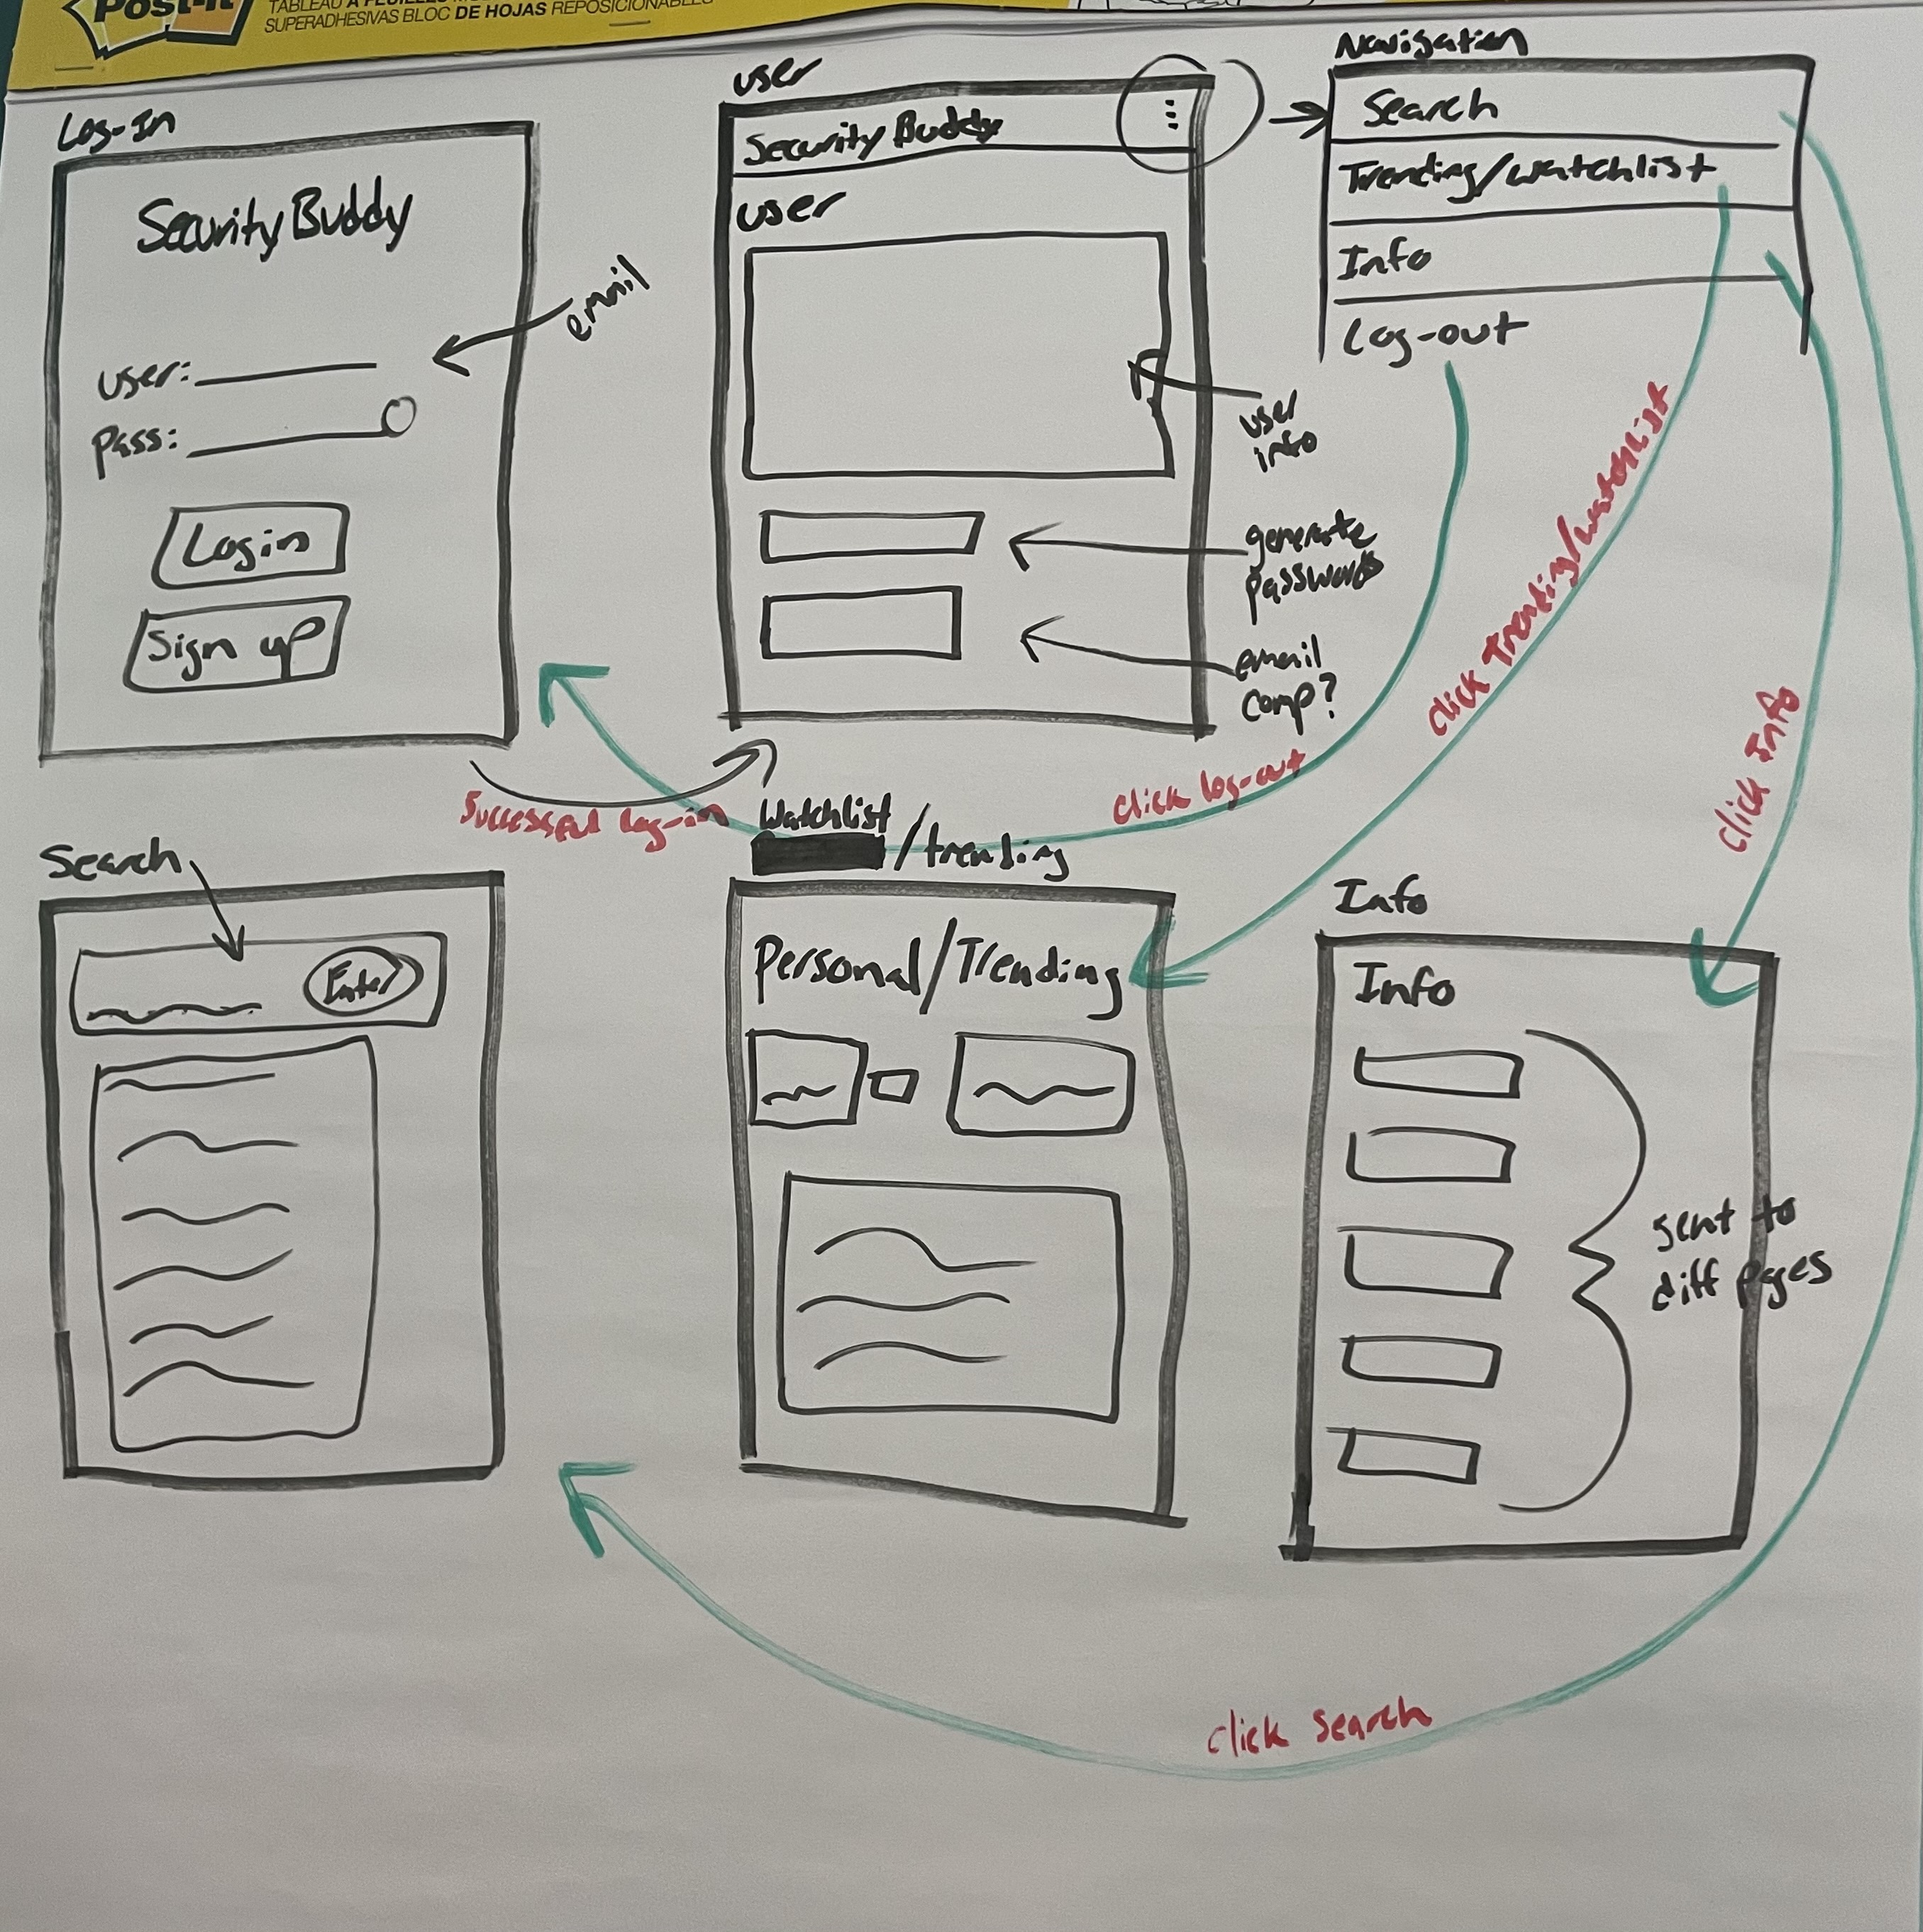 Post-it
SUPERADHESIVAS BLOC DE HOJAS REPOSICIONABLES
Log-In
Security Buddy
email
user:
pass:
Login
Sign up
user
Security Buddy
user
user
info
generate
passwords
email
comp?
Navigation
Search
Trending/watchlist
Info
Log-out
Successful log-in
click log-out
click Trending/watchlist
click Info
Search
Enter
Watchlist
/trending
Personal/Trending
Info
Info
sent to
diff pages
click search